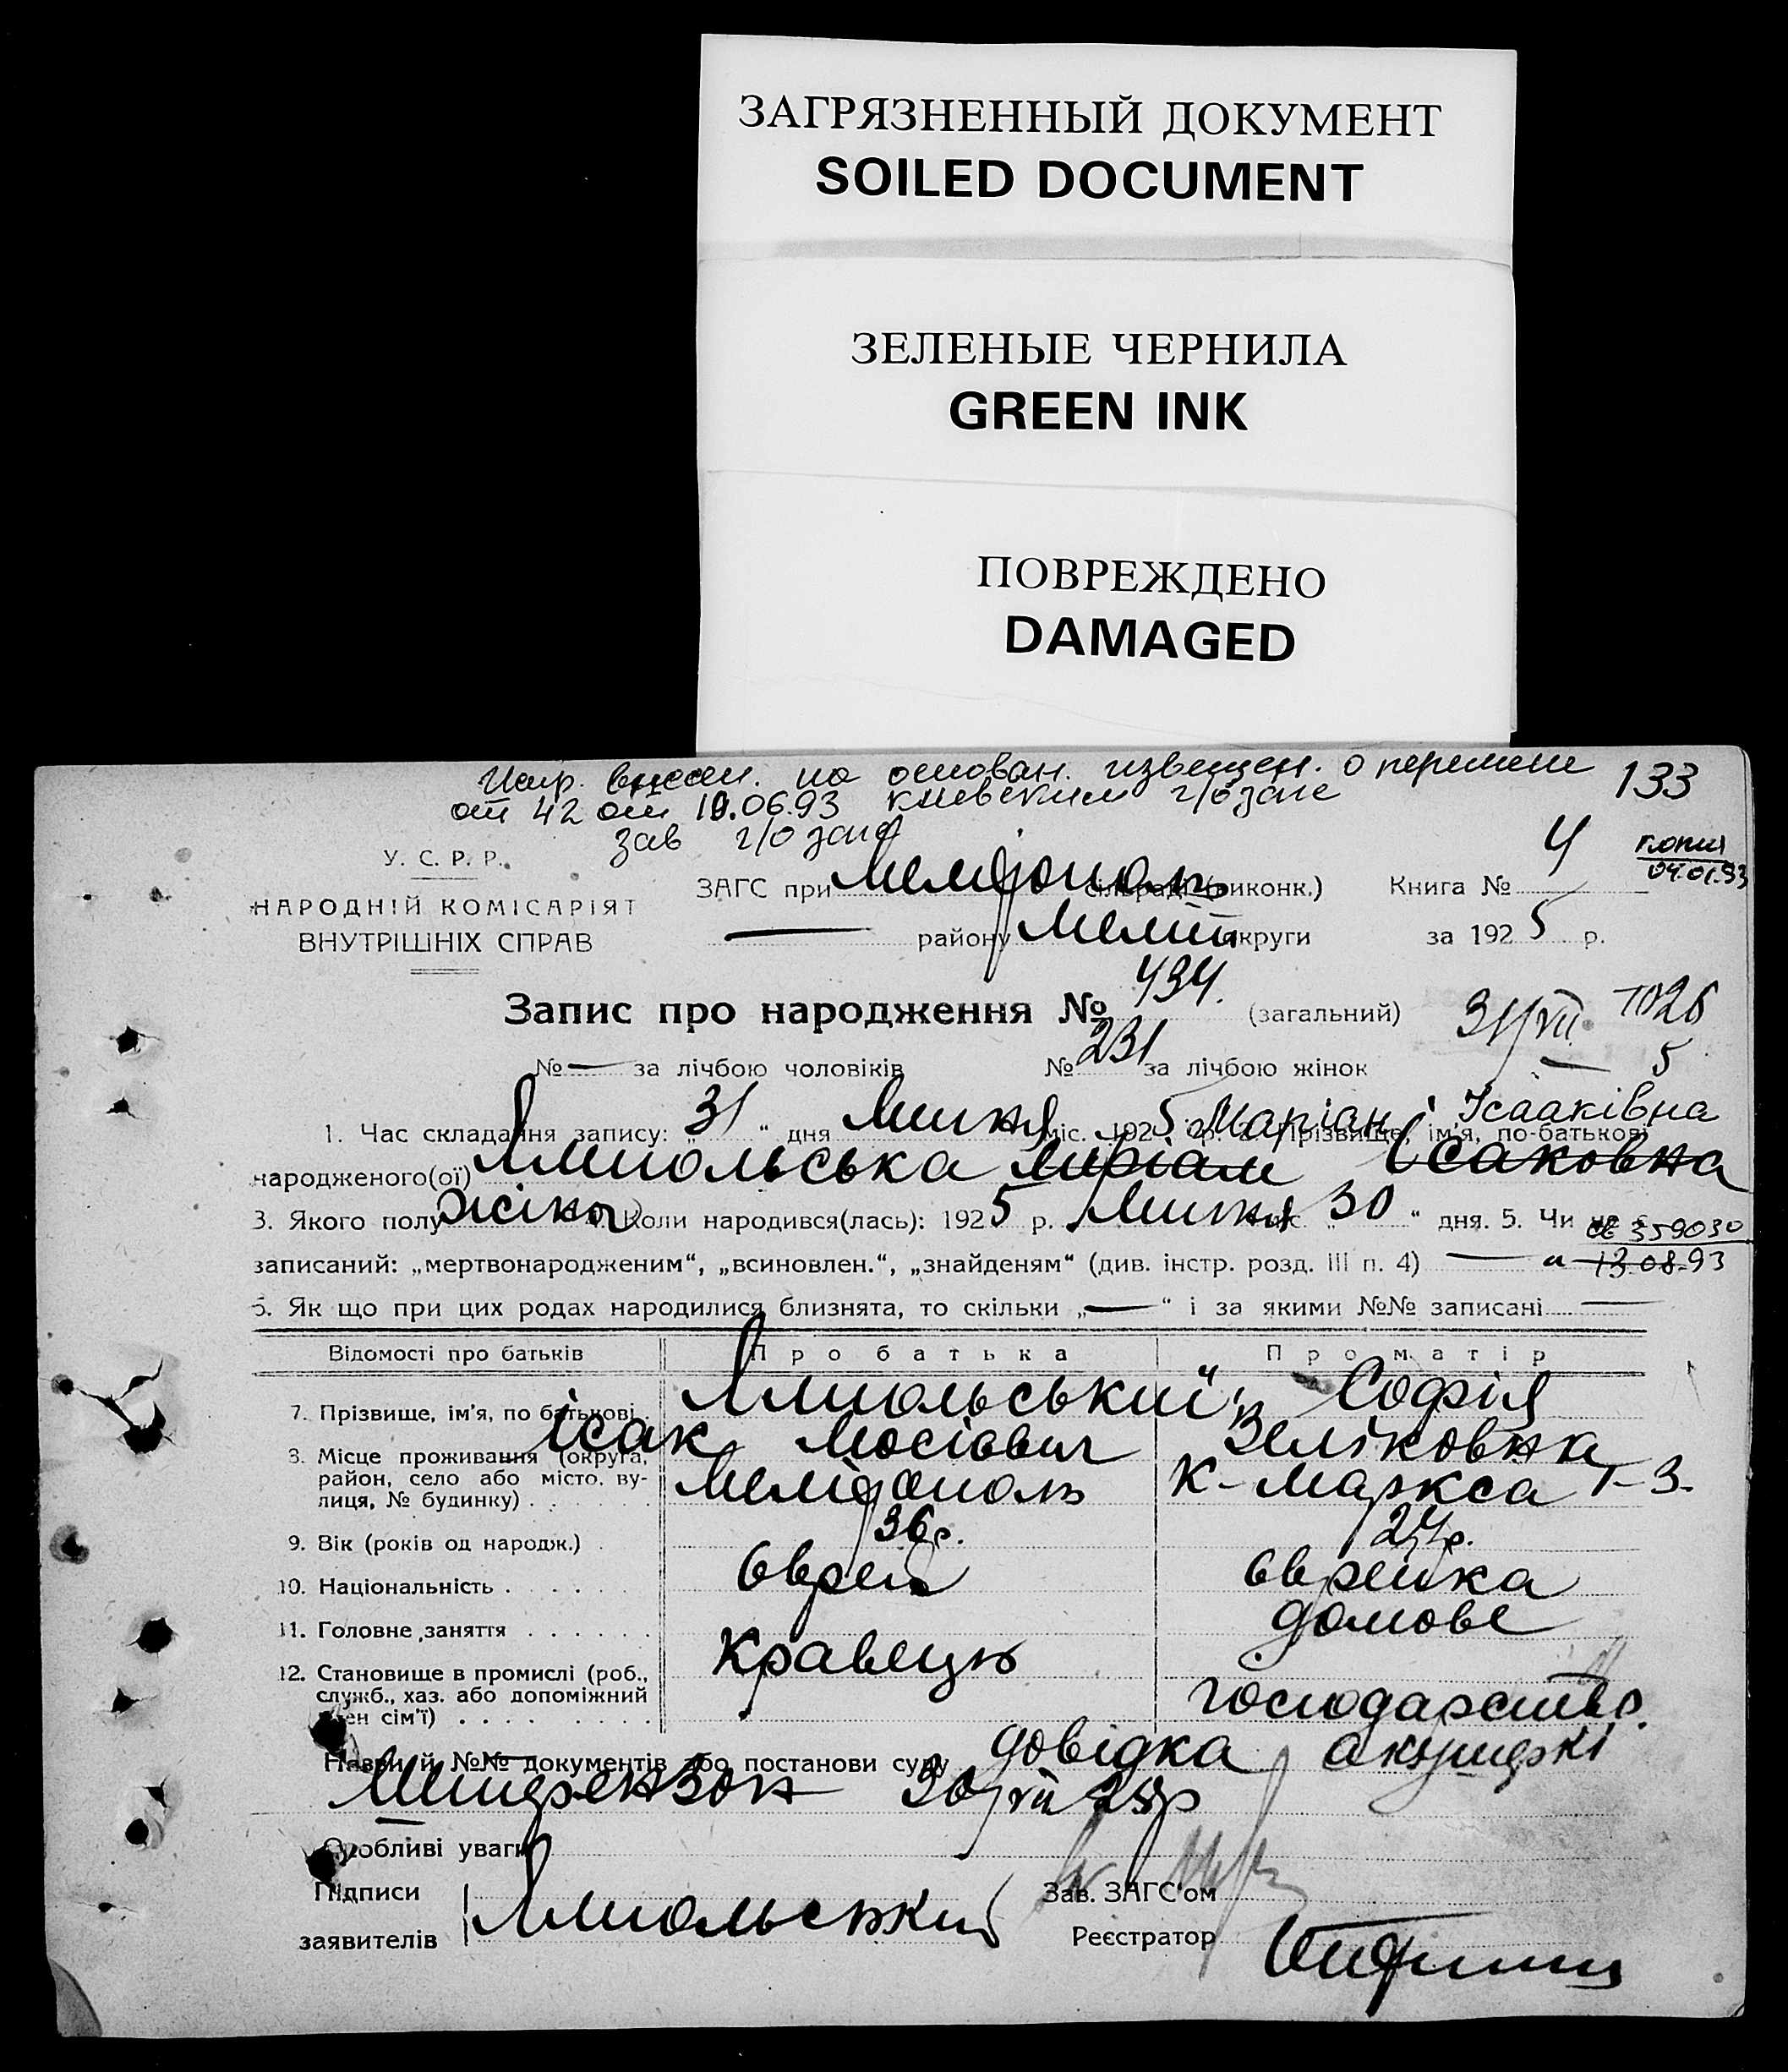 ЗАГРЯЗНЕННЫЙ ДОКУМЕНТ
SOILED DOCUMENT
ЗЕЛЕНЫЕ ЧЕРНИЛА
GREEN INK
ПОВРЕЖДЕНО
DAMAGED
Испр. внесен. на основан. извещен. о перемене 133
от 42 от 10.06.93 киевским г/о загс
зав г/о загс
У. С. Р. Р.
НАРОДНІЙ КОМІСАРІЯТ
ВНУТРІШНІХ СПРАВ
ЗАГС при Мелітополь сільраді (виконк.) Книга № 4 копия
04.01.93
— району Меліт округи за 1925 р.
Запис про народження № 434. (загальний) 31/VII
№ — за лічбою чоловіків № 231 за лічбою жінок 5
Маріам Ісааківна
1. Час складання запису: „31“ дня Липня міс. 1925 р. 2. Прізвище, ім'я, по-батькові
народженого(ої) Ямпольська Миріам Ісаковна
3. Якого полу жіноч 4. Коли народився(лась): 1925 р. Липня міс. „30“ дня. 5. Чи не є
359030
записаний: „мертвонародженим“, „всиновлен.“, „знайденям“ (див. інстр. розд. III п. 4) — 13.08.93
6. Як що при цих родах народилися близнята, то скільки „—“ і за якими №№ записані —
Відомості про батьків Про батька Про матір
7. Прізвище, ім'я, по батькові Ямпольський Ісак Мосіович Софія Зеліковна
8. Місце проживання (округа,
район, село або місто, ву-
лиця, № будинку) Мелітополь К-Маркса 1-3.
9. Вік (років од народж.) 36 р. 27 р.
10. Національність Єврей Єврейка
11. Головне заняття Кравець домове
12. Становище в промислі (роб.,
служб., хаз. або допоміжний
член сім'ї) господарство.
Назви й №№ документів або постанови суду довідка акушерки
30/VII 25р
Особливі уваги
Підписи
заявителів Ямпольський
Зав. ЗАГС'ом
Реєстратор